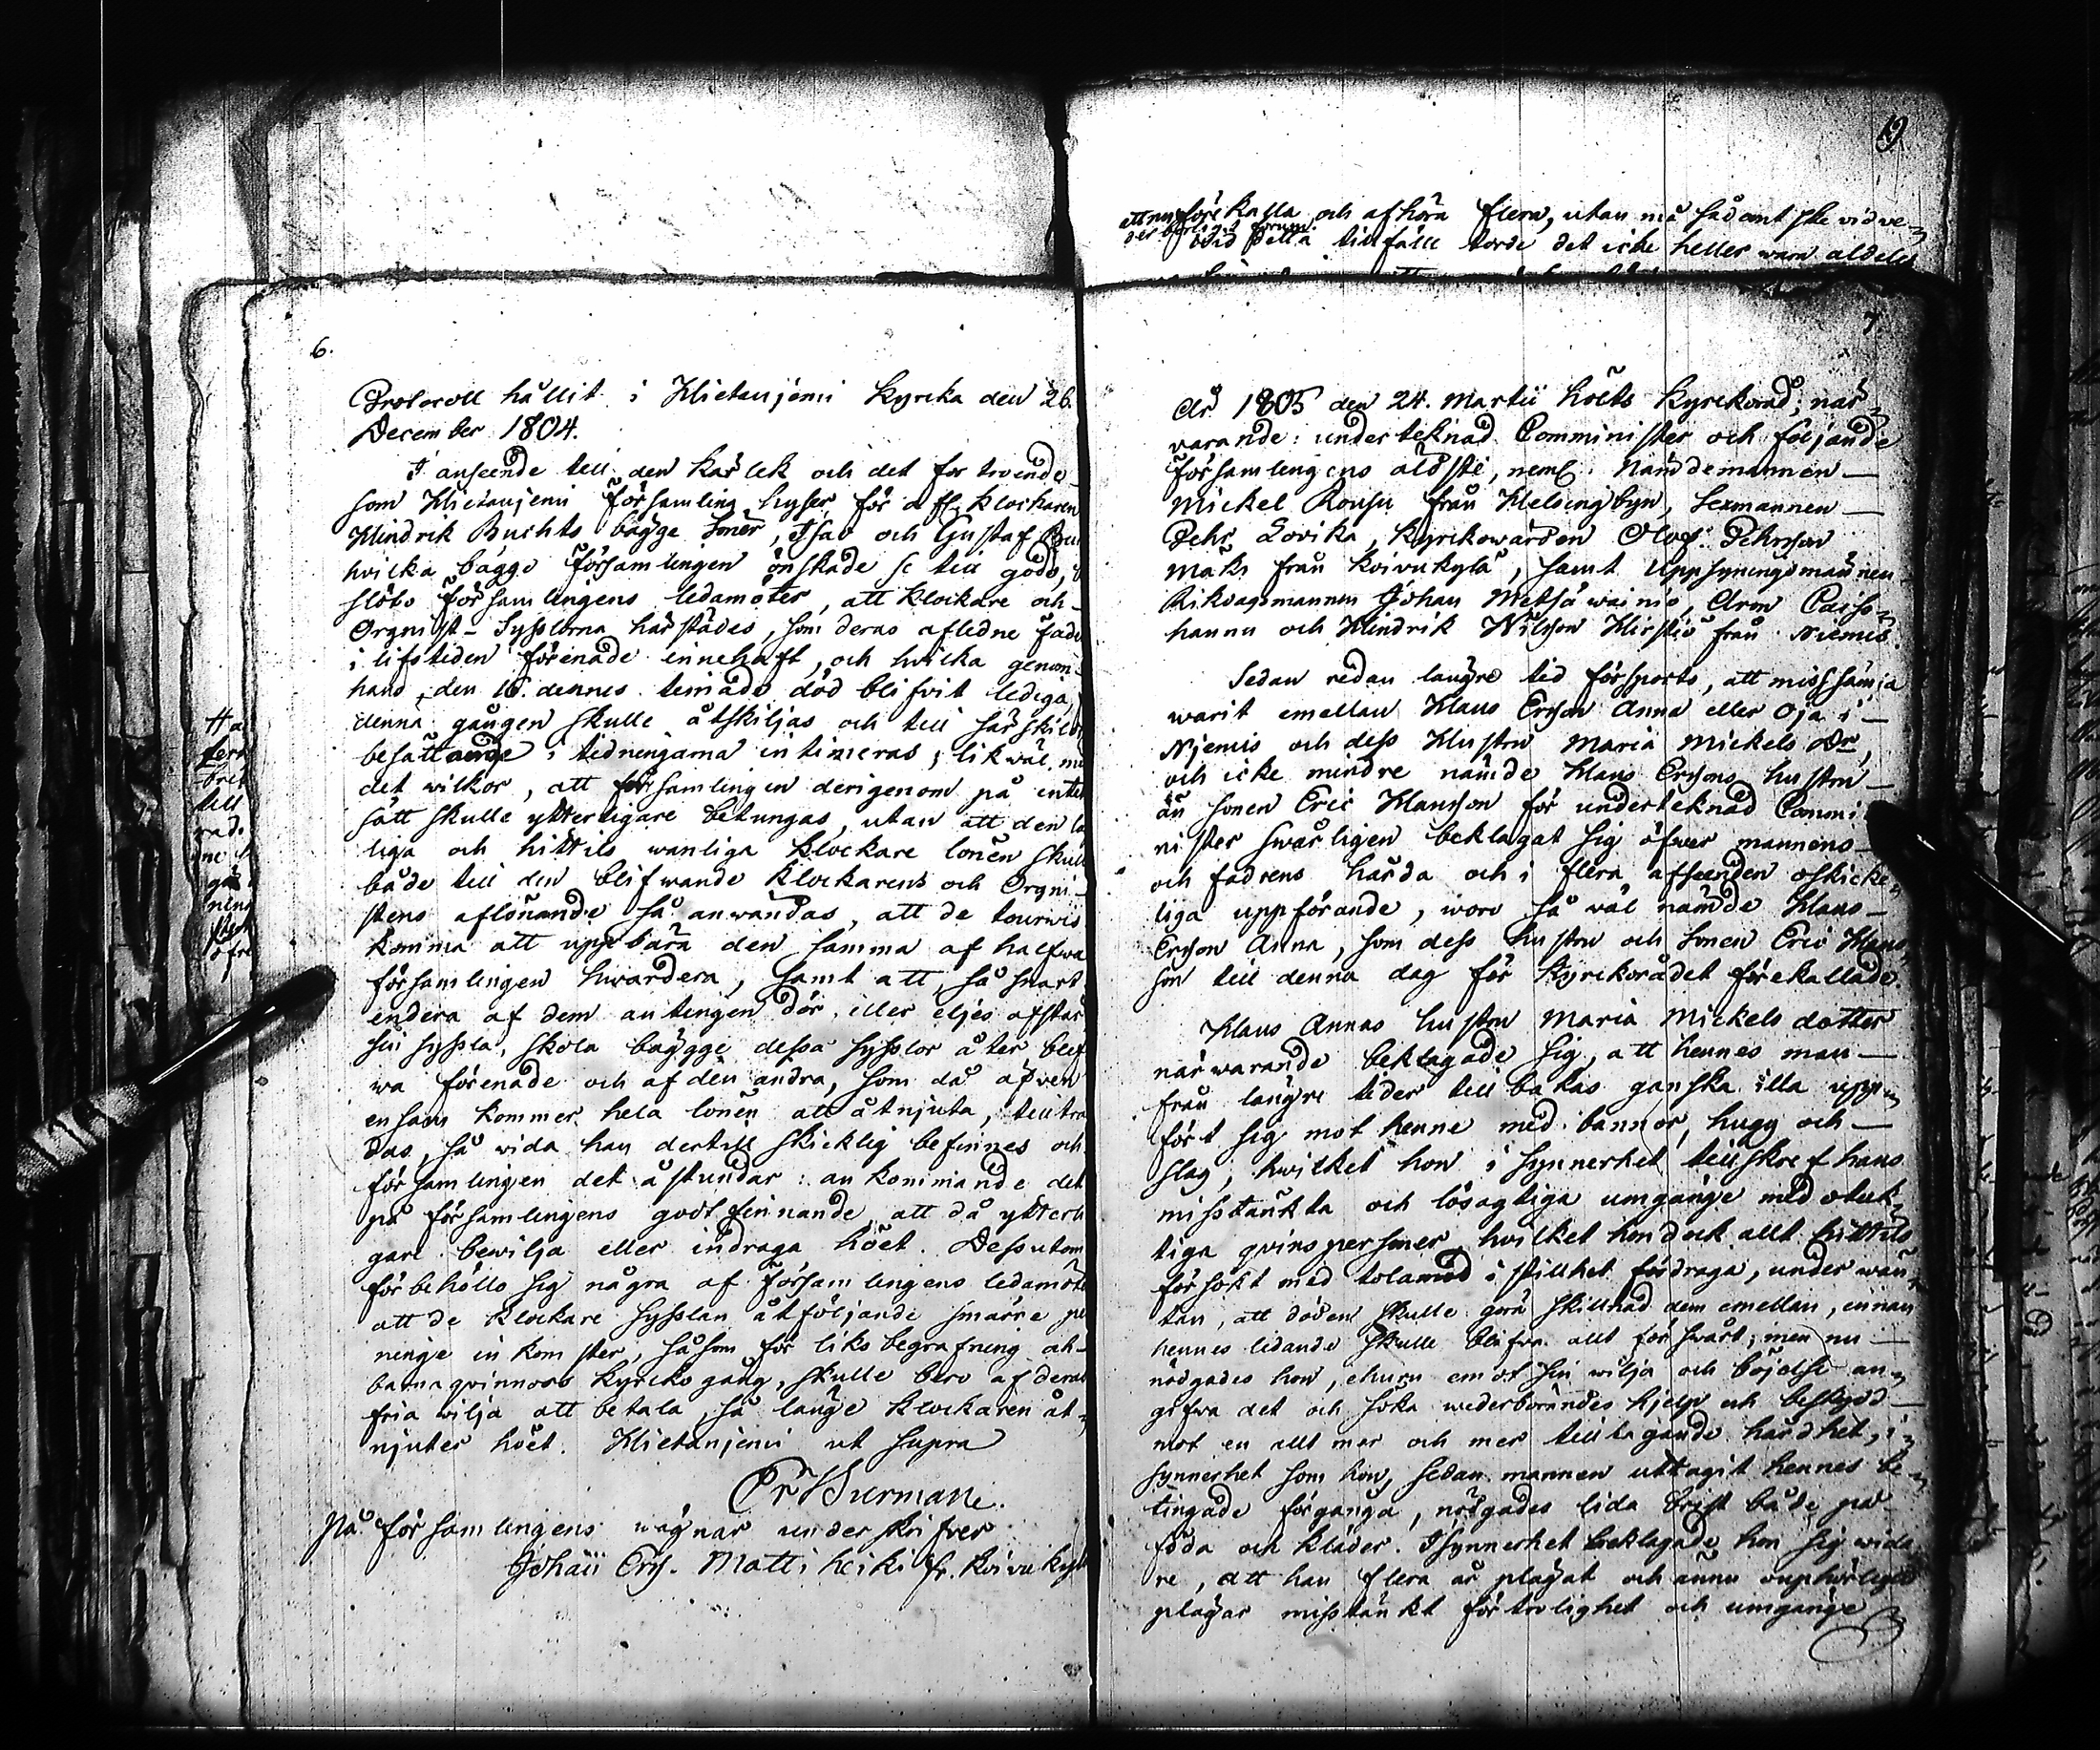 9
att nu förekalla och afhöra flera, utan må sådant ske vid ve-
Vid detta tillfälle torde det icke heller wara aldeles
6.
Protocoll hållit i Hietanjemi Kyrka den 26.
December 1804.
I anseende till den kärlek och det fortroende
som Hietanjemi Församling hyser för afl. Klockaren
Hindrik Buchts bägge Söner, Isac och Gustaf Bu
hvilka bägge Församlingen önskade se till godo,
slöto Församlingens ledamöter, att Klockare och
Orgnist-Sysslorna härstädes, som deras aflidne Fade
i lifstiden förenade innehaft, och hvilka genom
hans, den 16. dennes timade död blifvit lediga,
denna gången skulle åtskiljas och till särskild
besättande i tidningarna intimeras; likwäl me
det wilkor, att församlingen derigenom på intet
sätt skulle ytterligare betungas, utan att den la
liga och hittils wanliga Klockare lönen skulle
både till den blifwande Klockarens och Orgni-
stens aflönande så anwändas, att de tourwis
komma att uppbära den samma af halfwa
församlingen hwardera, samt att, så snart
endera af dem antingen dör, eller eljes afstår
sin syssla, skola bägge dessa sysslor åter blif
wa förenade och af den andra, som då äfven
ensam kommer hela lönen att åtnjuta, tillträ
das, så wida han dertill skicklig befinnes och
församlingen det åstundar: ankommande det
på församlingens godtfinnande att då ytterli
gare bewilja eller indraga höet. Dessutom
förbehöllo sig några af Församlingens ledamöte
att de klockare sysslan åtföljande smärre pe
ninge inkomster, såsom för liks begrafning oh-
barnaqvinnors kyrkogång, skulle bero af deras
fria wilja att betala, så länge klockaren åt-
njuter höet. Hietanjemi ut supra
Er Wurmann.
På församlingens wägnar underskrifver
Johan Ers. Matti heiki fr. Koivukyl
7.
År 1805 den 24. Martii hölts Kyrkoråd; när-
varande: undertecknad Comminister och följande
församlingens äldste, neml. Nämndemannen
Mickel Rousu från Helsingbyn, Sexmannen
Pehr Lovika, Kyrkowärden Olof Pehrsson
Maki från Koivukylä, samt Uppsyningsmännen
Riksdagsmannen Johan Metsäwainio, Aron Paiso-
hannu och Hindrik Nilsson Hirstiö från Niemis.
Sedan redan längre tid försports, att misssämja
warit emellan Klaus Ersson Anna eller Oja i
Njemis och dess Hustru Maria Mickels Dr,
och icke mindre nämde Klaus Erssons hustru
än sonen Eric Klausson för undertecknad Commi-
nister swårligen beklagat sig öfwer mannens
och fadrens hårda och i flera afseenden oskicke-
liga uppförande, woro så väl nämde Klaus
Ersson Anna, som dess hustru och sonen Eric Klaus-
son till denna dag för Kyrkorådet förekallade.
Klaus Annas hustru Maria Mickelsdotter
närwarande beklagade sig, att hennes man
från längre tider tillbakas ganska illa upp-
fört sig mot henne med bannor, hugg och
slag, hwilket hon i synnerhet tillskref hans
misstänkta och lösagtiga umgänge med otuk-
tiga qvinspersoner, hvilket hon dock allt hittils
försökt med tolamod i stillhet fördraga, under wän-
tan, att döden skulle göra skillnad dem emellan, innan
hennes lidande skulle blifva allt för swårt; men nu
nödgades hon, ehuru emot sin wilja och böjelse an-
gifwa det och söka wederbörandes hjelp och beskydd
mot en allt mer och mer tilltagande hårdhet, i
synnerhet som hon, sedan mannen uttagit hennes be-
tingade förgånga, nödgades lida brist både på
föda och kläder. I synnerhet beklagade hon sig wida-
re, att han flera år plägat och ännu oupphörligen
plägar misstänkt förtrolighet och umgänge